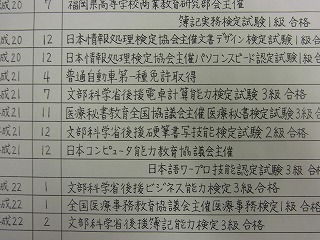 成20 7 福岡県高等学校商業教育研究部会主催
簿記実務検定試験1級 合格
成20 12 日本情報処理検定協会主催文書デザイン検定試験1級合
成20 12 日本情報処理検定協会主催パソコンスピード認定試験1級合
成21 4 普通自動車第一種免許取得
成21 7 文部科学省後援電卓計算能力検定試験3級 合格
平成21 11 医療秘書教育全国協議会主催 医療秘書検定試験3級合
平成21 12 文部科学省後援硬筆書写技能検定試験2級 合格
平成21 12 日本コンピュータ能力教育協議会主催
日本語ワープロ技能認定試験3級 合格
平成22 1 文部科学省後援ビジネス能力検定3級 合格
平成22 1 全国医療事務教育協議会主催医療事務検定1級 合格
平成22 2 文部科学省後援簿記能力検定3級 合格